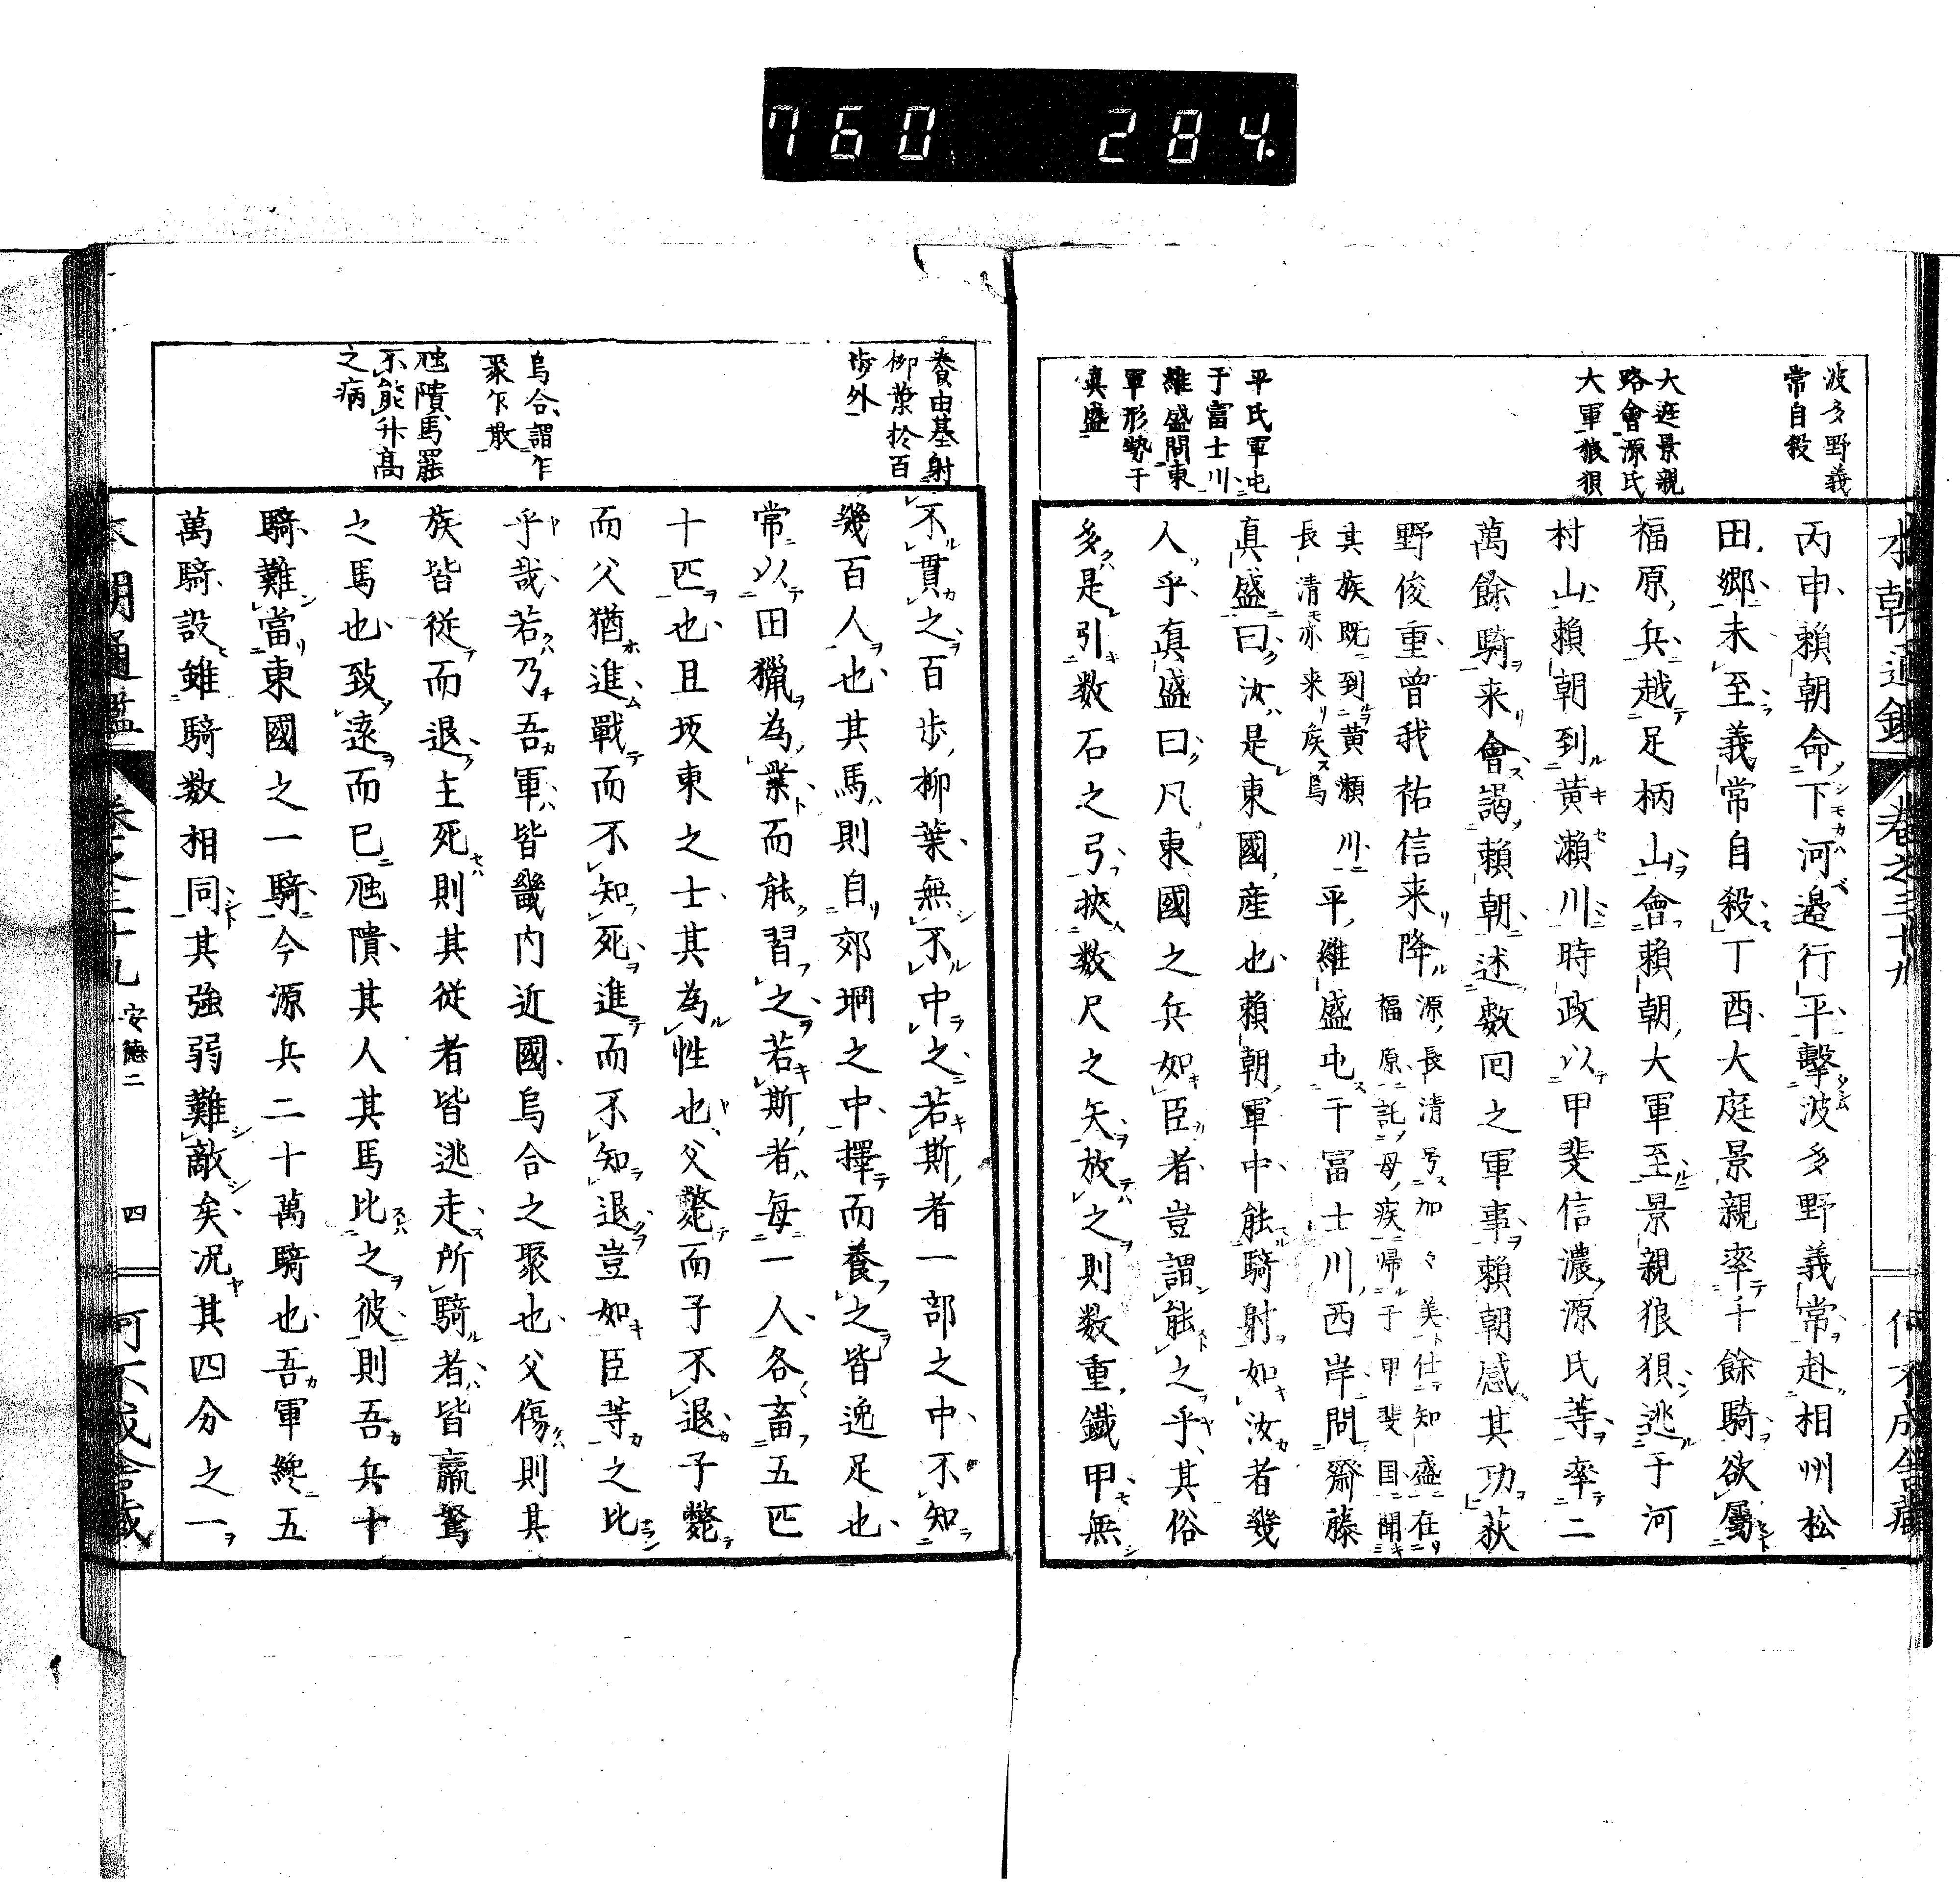 760 284.
本朝通鑑 卷之三十九 何不成舎藏
波多野義
常自殺
大庭景親
路會源氏
大軍狼狽
平氏軍屯
于富士川
維盛問東
軍形勢于
真盛
丙申賴朝命下河邉行平擊波多野義常赴相州松
田郷未至義常自殺丁酉大庭景親率千餘騎欲屬
福原兵越足柄山會賴朝大軍至景親狼狽逃于河
村山賴朝到黄瀬川時政以甲斐信濃源氏等率二
萬餘騎来會謁賴朝述数回之軍事賴朝感其功荻
野俊重曾我祐信来降源長清号加々美仕知盛在
福原託母疾帰于甲斐国聞
其族既到黄瀬川
長清亦来矦焉平維盛屯于冨士川西岸問齋藤
真盛曰汝是東國産也賴朝軍中能騎射如汝者幾
人乎真盛曰凡東國之兵如臣者豈謂能之乎其俗
多是引数石之弓挾数尺之矢放之則数重鐵甲無
養由基射
柳葉於百
歩外
烏合謂乍
聚乍散
虺隤馬罷
不能升高
之病
不貫之百歩柳葉無不中之若斯者一部之中不知
幾百人也其馬則自郊坰之中擇而養之皆逸足也
常以田獵為業而能習之若斯者每一人各畜五匹
十匹也且坂東之士其為性也父斃而子不退子斃
而父猶進戰而不知死進而不知退豈如臣等之比
乎哉若乃吾軍皆畿内近國烏合之聚也父傷則其
族皆従而退主死則其従者皆逃走所騎者皆羸駑
之馬也致遠而已虺隤其人其馬比之彼則吾兵十
騎難當東國之一騎今源兵二十萬騎也吾軍纔五
萬騎設雖騎数相同其強弱難敵矣况其四分之一
本朝通鑑 卷之三十九 安德二 四 何不成舎藏